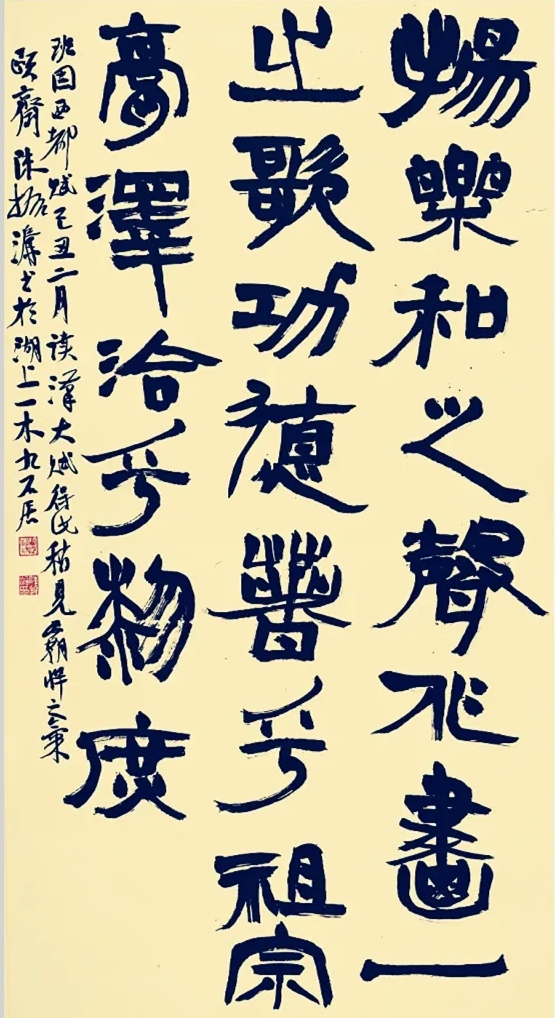 揚樂和之聲作畫一
之歌功德著乎祖宗
膏澤洽乎黎庶
班固西都賦己丑二月读漢大賦得此稍見霸悍之氣
頤齋陳振濂书於湖上一木九石居